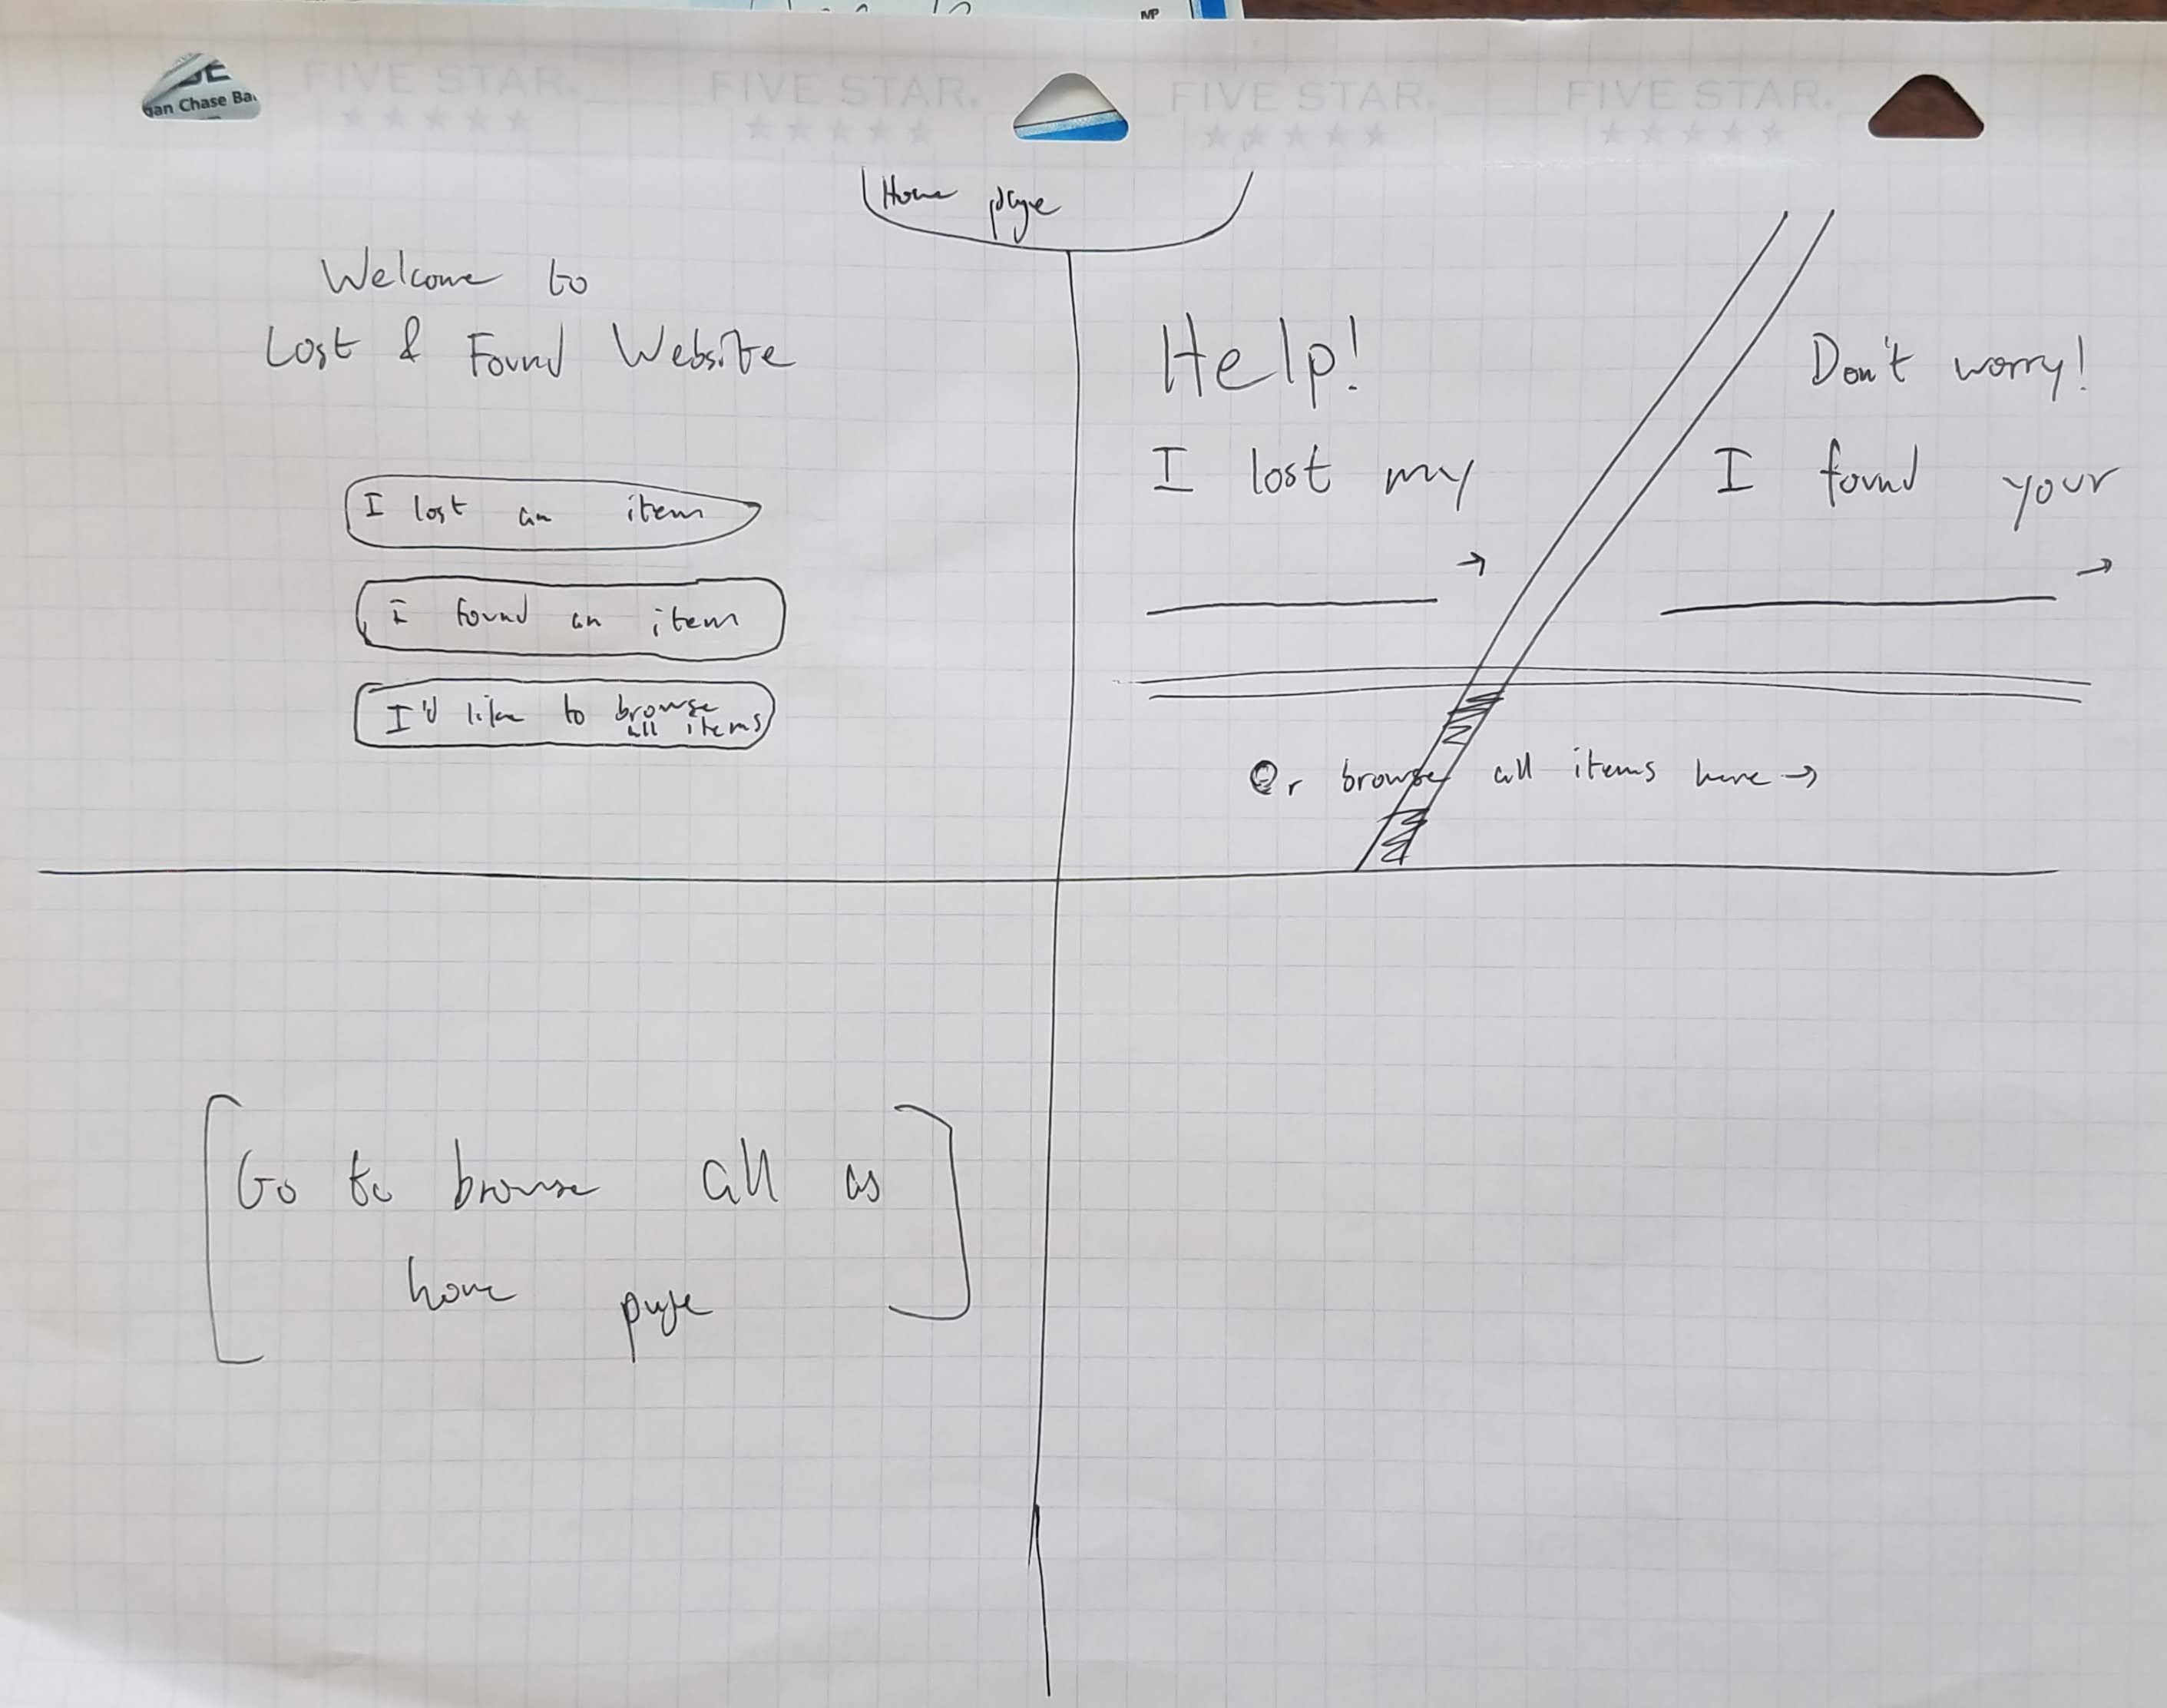 MP
an Chase Ba
FIVE STAR. FIVE STAR. FIVE STAR. FIVE STAR.
Home page
Welcome to
Lost & Found Website
I lost an item
I found an item
I'd like to browse
all items
Help!
I lost my
→
Don't worry!
I found your
→
Or browse all items here →
Go to browse all as
home page